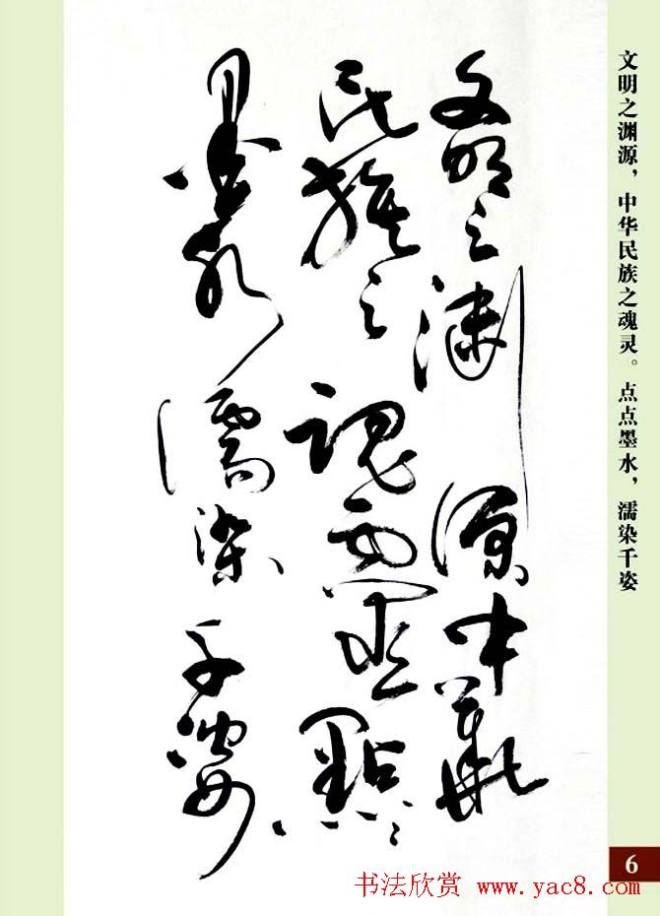 文明之渊源中華
民族之魂靈點〻
墨水濡染千姿
文明之渊源，中华民族之魂灵。点点墨水，濡染千姿
6
书法欣赏 www.yac8.com